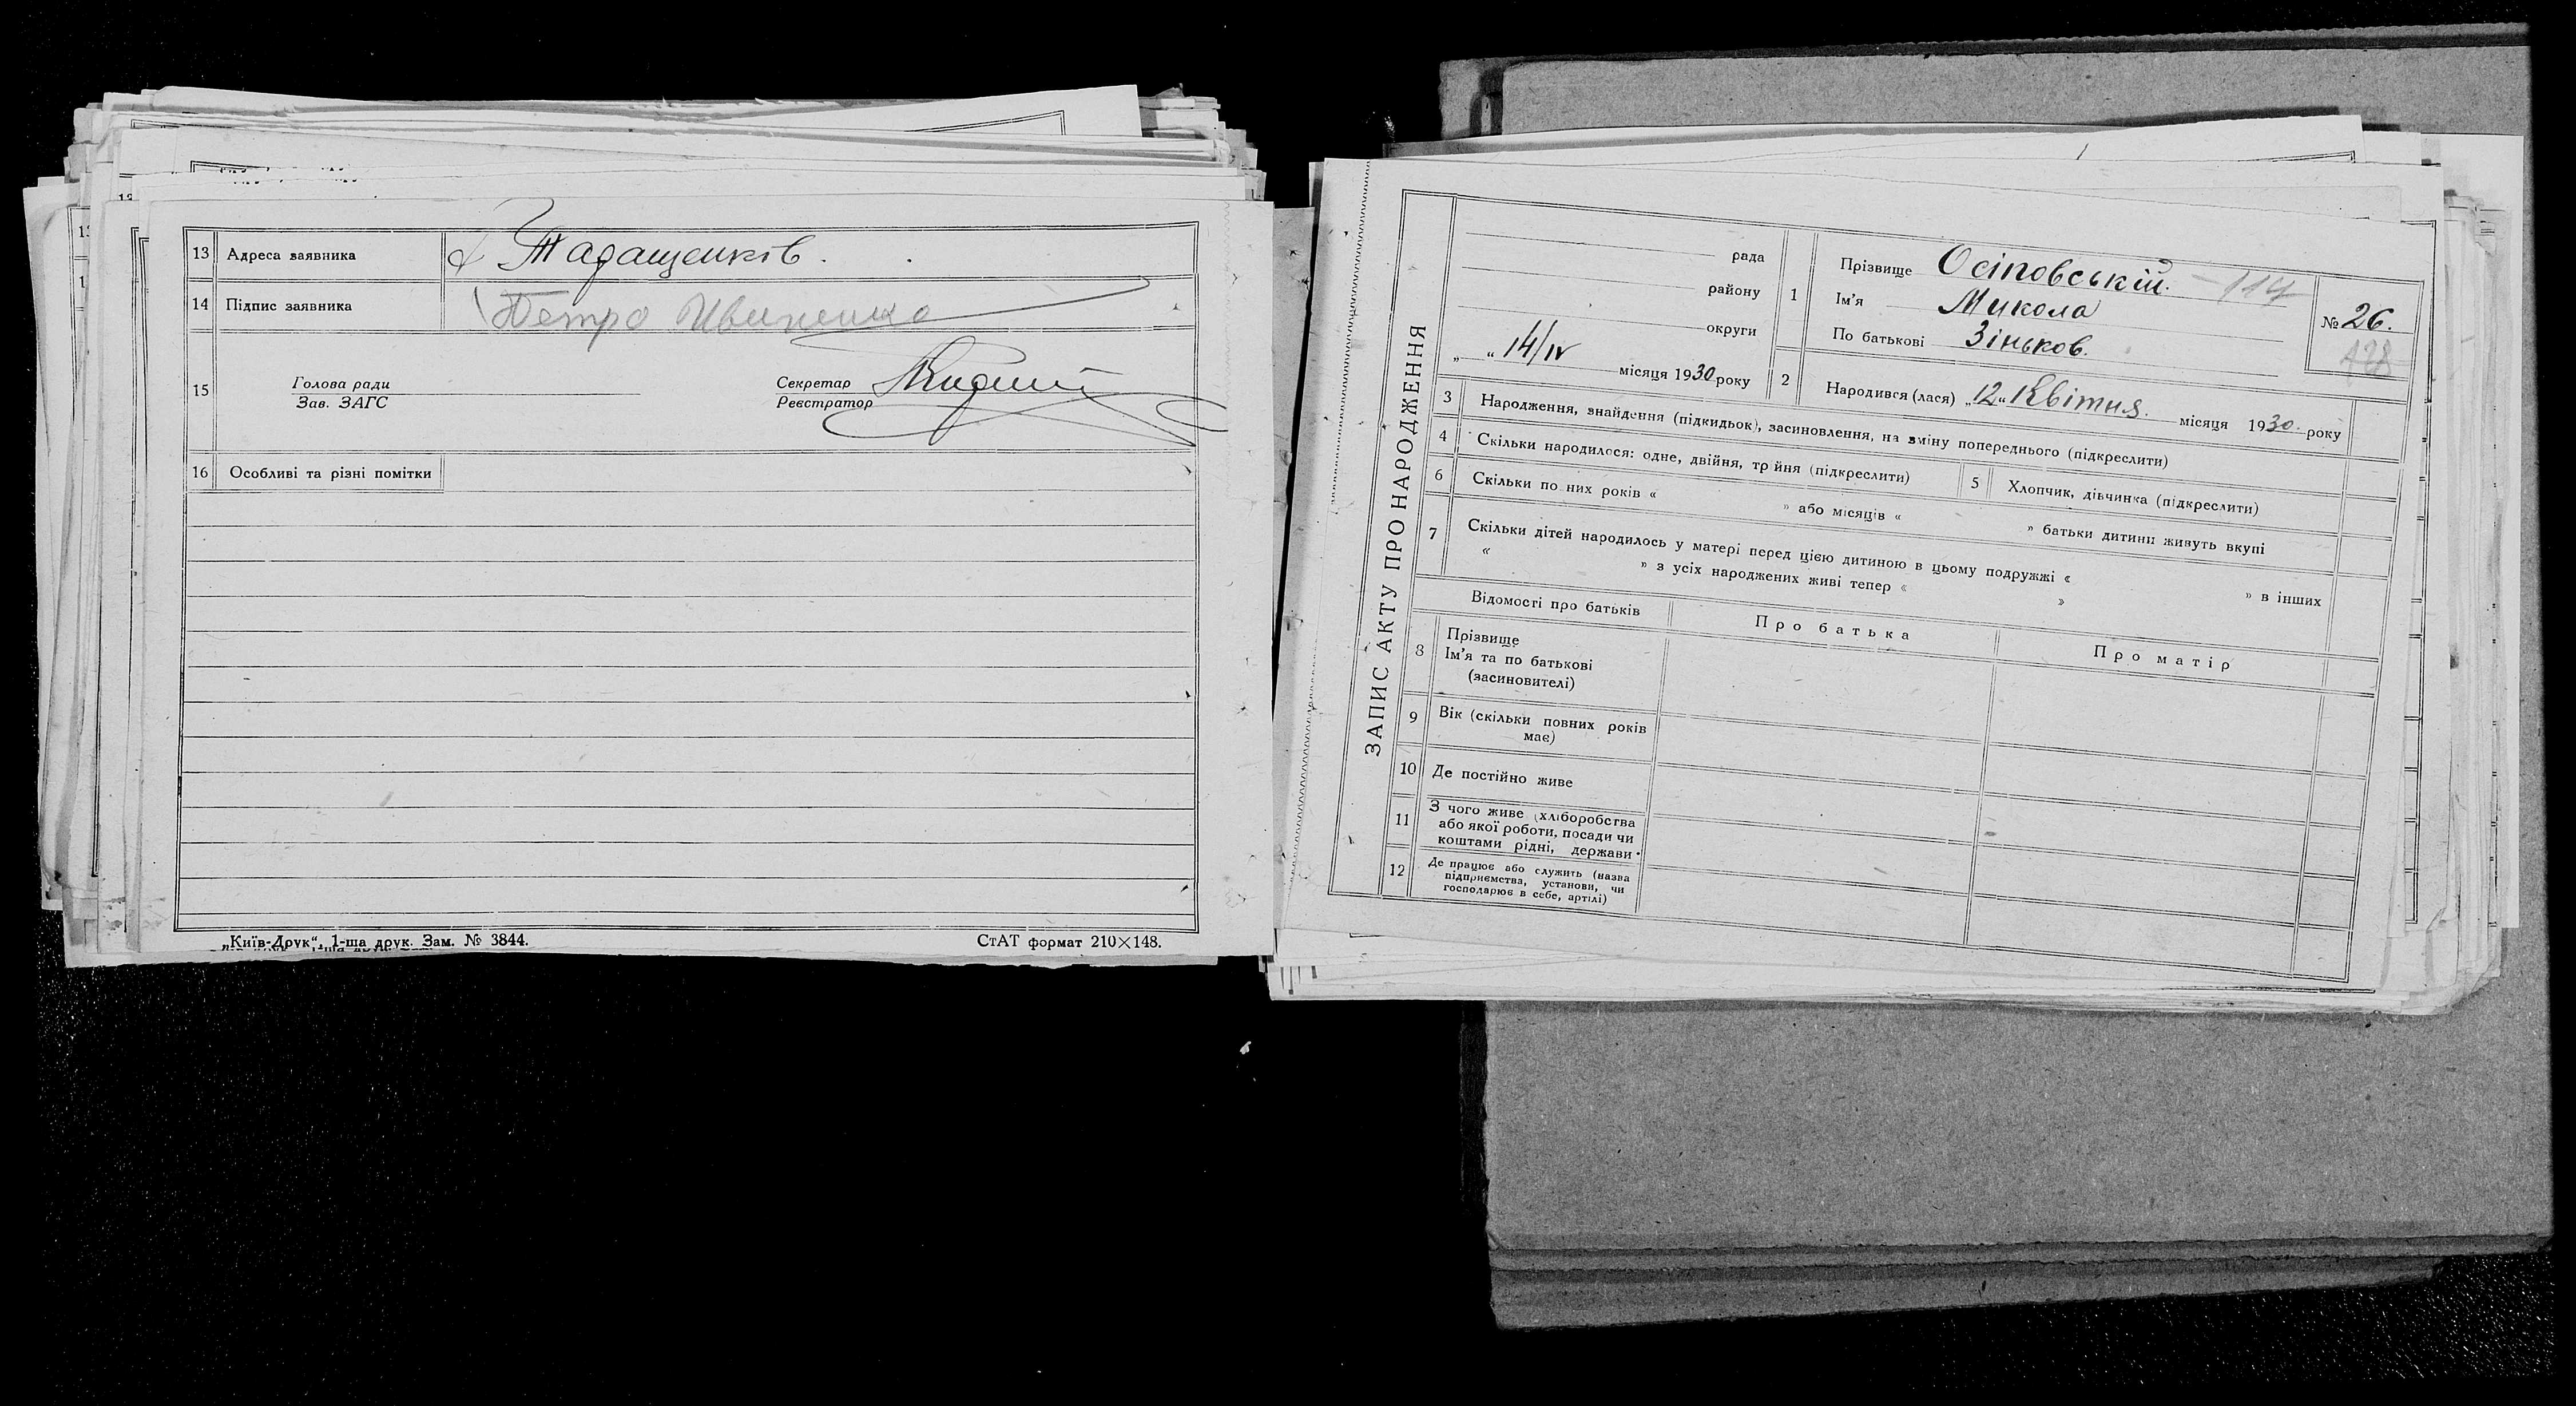 13 Адреса заявника х Тадащенків.
14 Підпис заявника Петро Ивиненко
15 Голова ради
Зав. ЗАГС
Секретар
Реєстратор
16 Особливі та різні помітки
„Київ-Друк“, 1-ша друк. Зам. № 3844.
СтАТ формат 210×148.
ЗАПИС АКТУ ПРО НАРОДЖЕННЯ
рада
району
округи
„ “ 14/IV місяця 1930 року
1 Прізвище Осіповській 114
Ім'я Микола
По батькові Зіньков.
№ 26.
2 Народився (лася) „12“ Квітня. місяця 1930. року
3 Народження, знайдення (підкидьок), засиновлення, на зміну попереднього (підкреслити)
4 Скільки народилося: одне, двійня, трійня (підкреслити)
5 Хлопчик, дівчинка (підкреслити)
6 Скільки повних років « » або місяців « » батьки дитини живуть вкупі
7 Скільки дітей народилось у матері перед цією дитиною в цьому подружжі « » в інших
« » з усіх народжених живі тепер « »
Відомості про батьків Про батька Про матір
8 Прізвище
Ім'я та по батькові
(засиновителі)
9 Вік (скільки повних років
має)
10 Де постійно живе
11 З чого живе (хліборобства
або якої роботи, посади чи
коштами рідні, держави
12 Де працює або служить (назва
підприємства, установи, чи
господарює в себе, артілі)